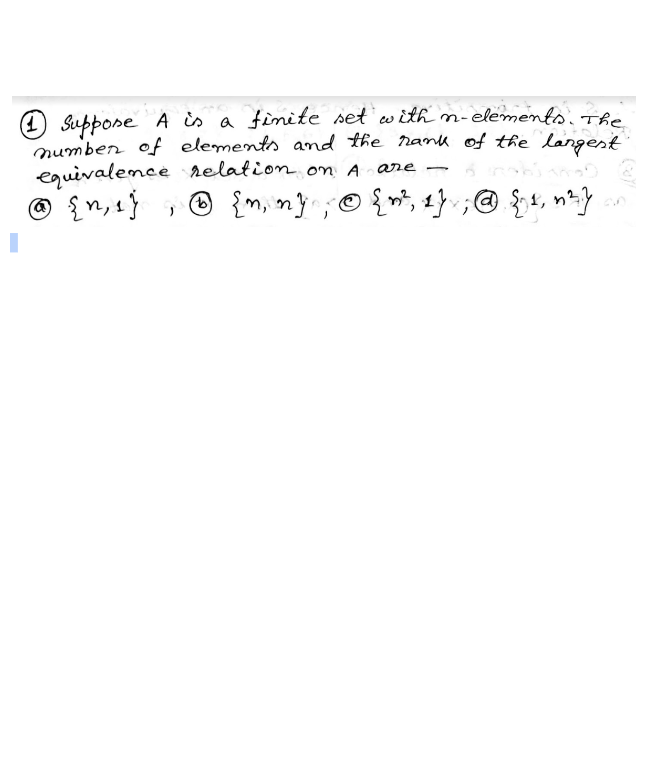 ① Suppose A is a finite set with n-elements. The
number of elements and the rank of the largest
equivalence relation on A are —
ⓐ {n, 1} , ⓑ {n, n} ; ⓒ {n², 1} ; ⓓ {1, n²}